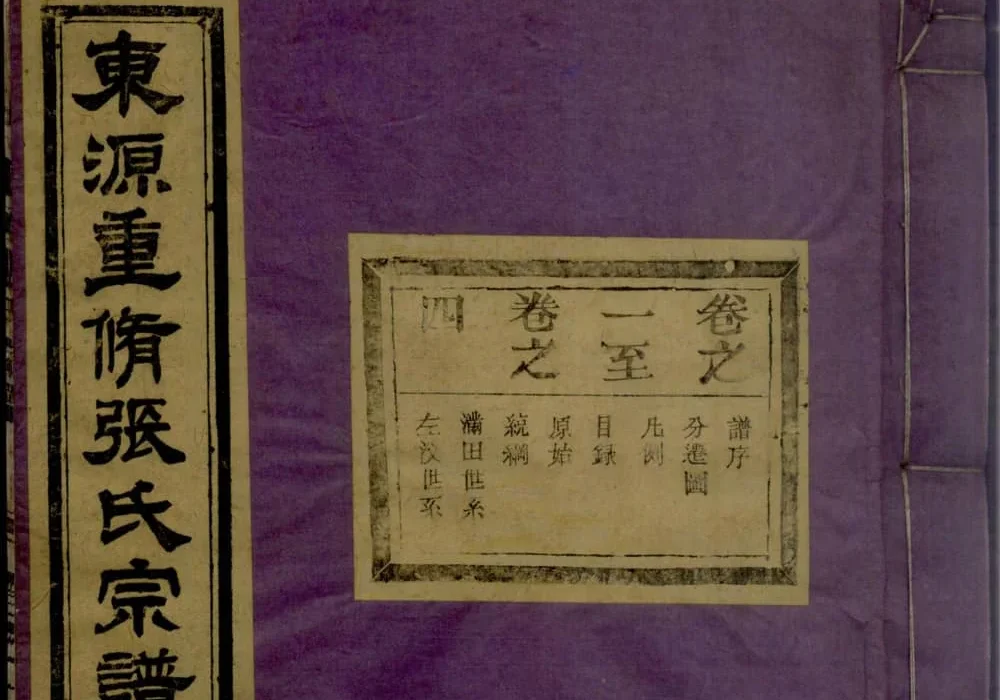 東源重脩張氏宗譜
卷之
一至
卷之
四
譜序
分遷圖
凡例
目錄
原始
統綱
莆田世系
左汊世系